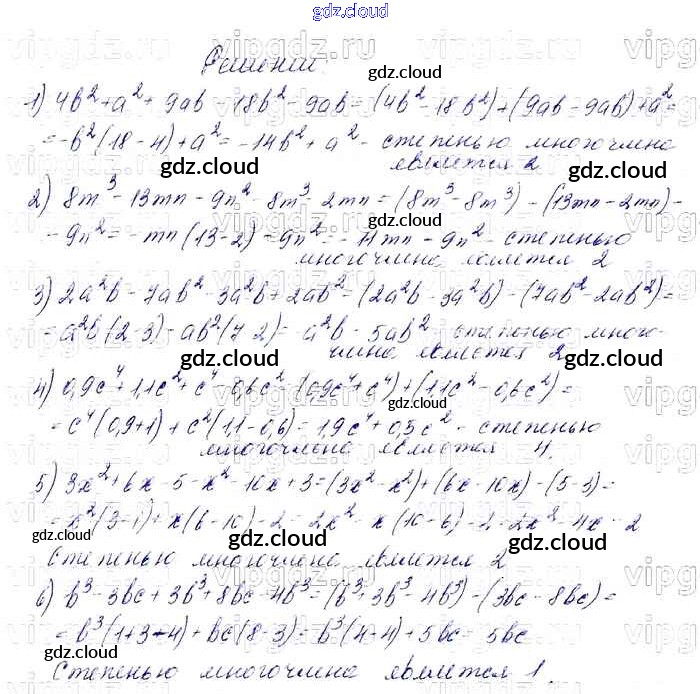 gdz.cloud
Решение.
1) 4b² + a² + 9ab - 18b² - 9ab = (4b² - 18b²) + (9ab - 9ab) + a² =
= -b²(18 - 4) + a² = -14b² + a² - степенью многочлена
является 2
2) 8m³ - 13mn - 9n² - 8m³ - 2mn = (8m³ - 8m³) - (13mn - 2mn) -
- 9n² = - mn(13 - 2) - 9n² = - 11mn - 9n² - степенью
многочлена является 2
3) 2a²b - 7ab² - 3a²b + 2ab² = (2a²b - 3a²b) - (7ab² - 2ab²) =
= a²b(2-3) - ab²(7-2) = -a²b - 5ab² - степенью много-
члена является 2
4) 0,9c⁴ + 1,1c² + c⁴ - 0,6c² = (0,9c⁴ + c⁴) + (1,1c² - 0,6c²) =
= c⁴(0,9+1) + c²(1,1 - 0,6) = 1,9c⁴ + 0,5c² - степенью
многочлена является 4.
5) 3x² + 6x - 5 - x² - 10x + 3 = (3x² - x²) + (6x - 10x) - (5-3) =
= x²(3-1) + x(6-10) - 2 = 2x² - x(10-6) - 2 = 2x² - 4x - 2
Степенью многочлена является 2
6) b³ - 3bc + 3b³ + 8bc - 4b³ = (b³ + 3b³ - 4b³) - (3bc - 8bc) =
= b³(1+3-4) + bc(8-3) = b³(4-4) + 5bc = 5bc
Степенью многочлена является 1.